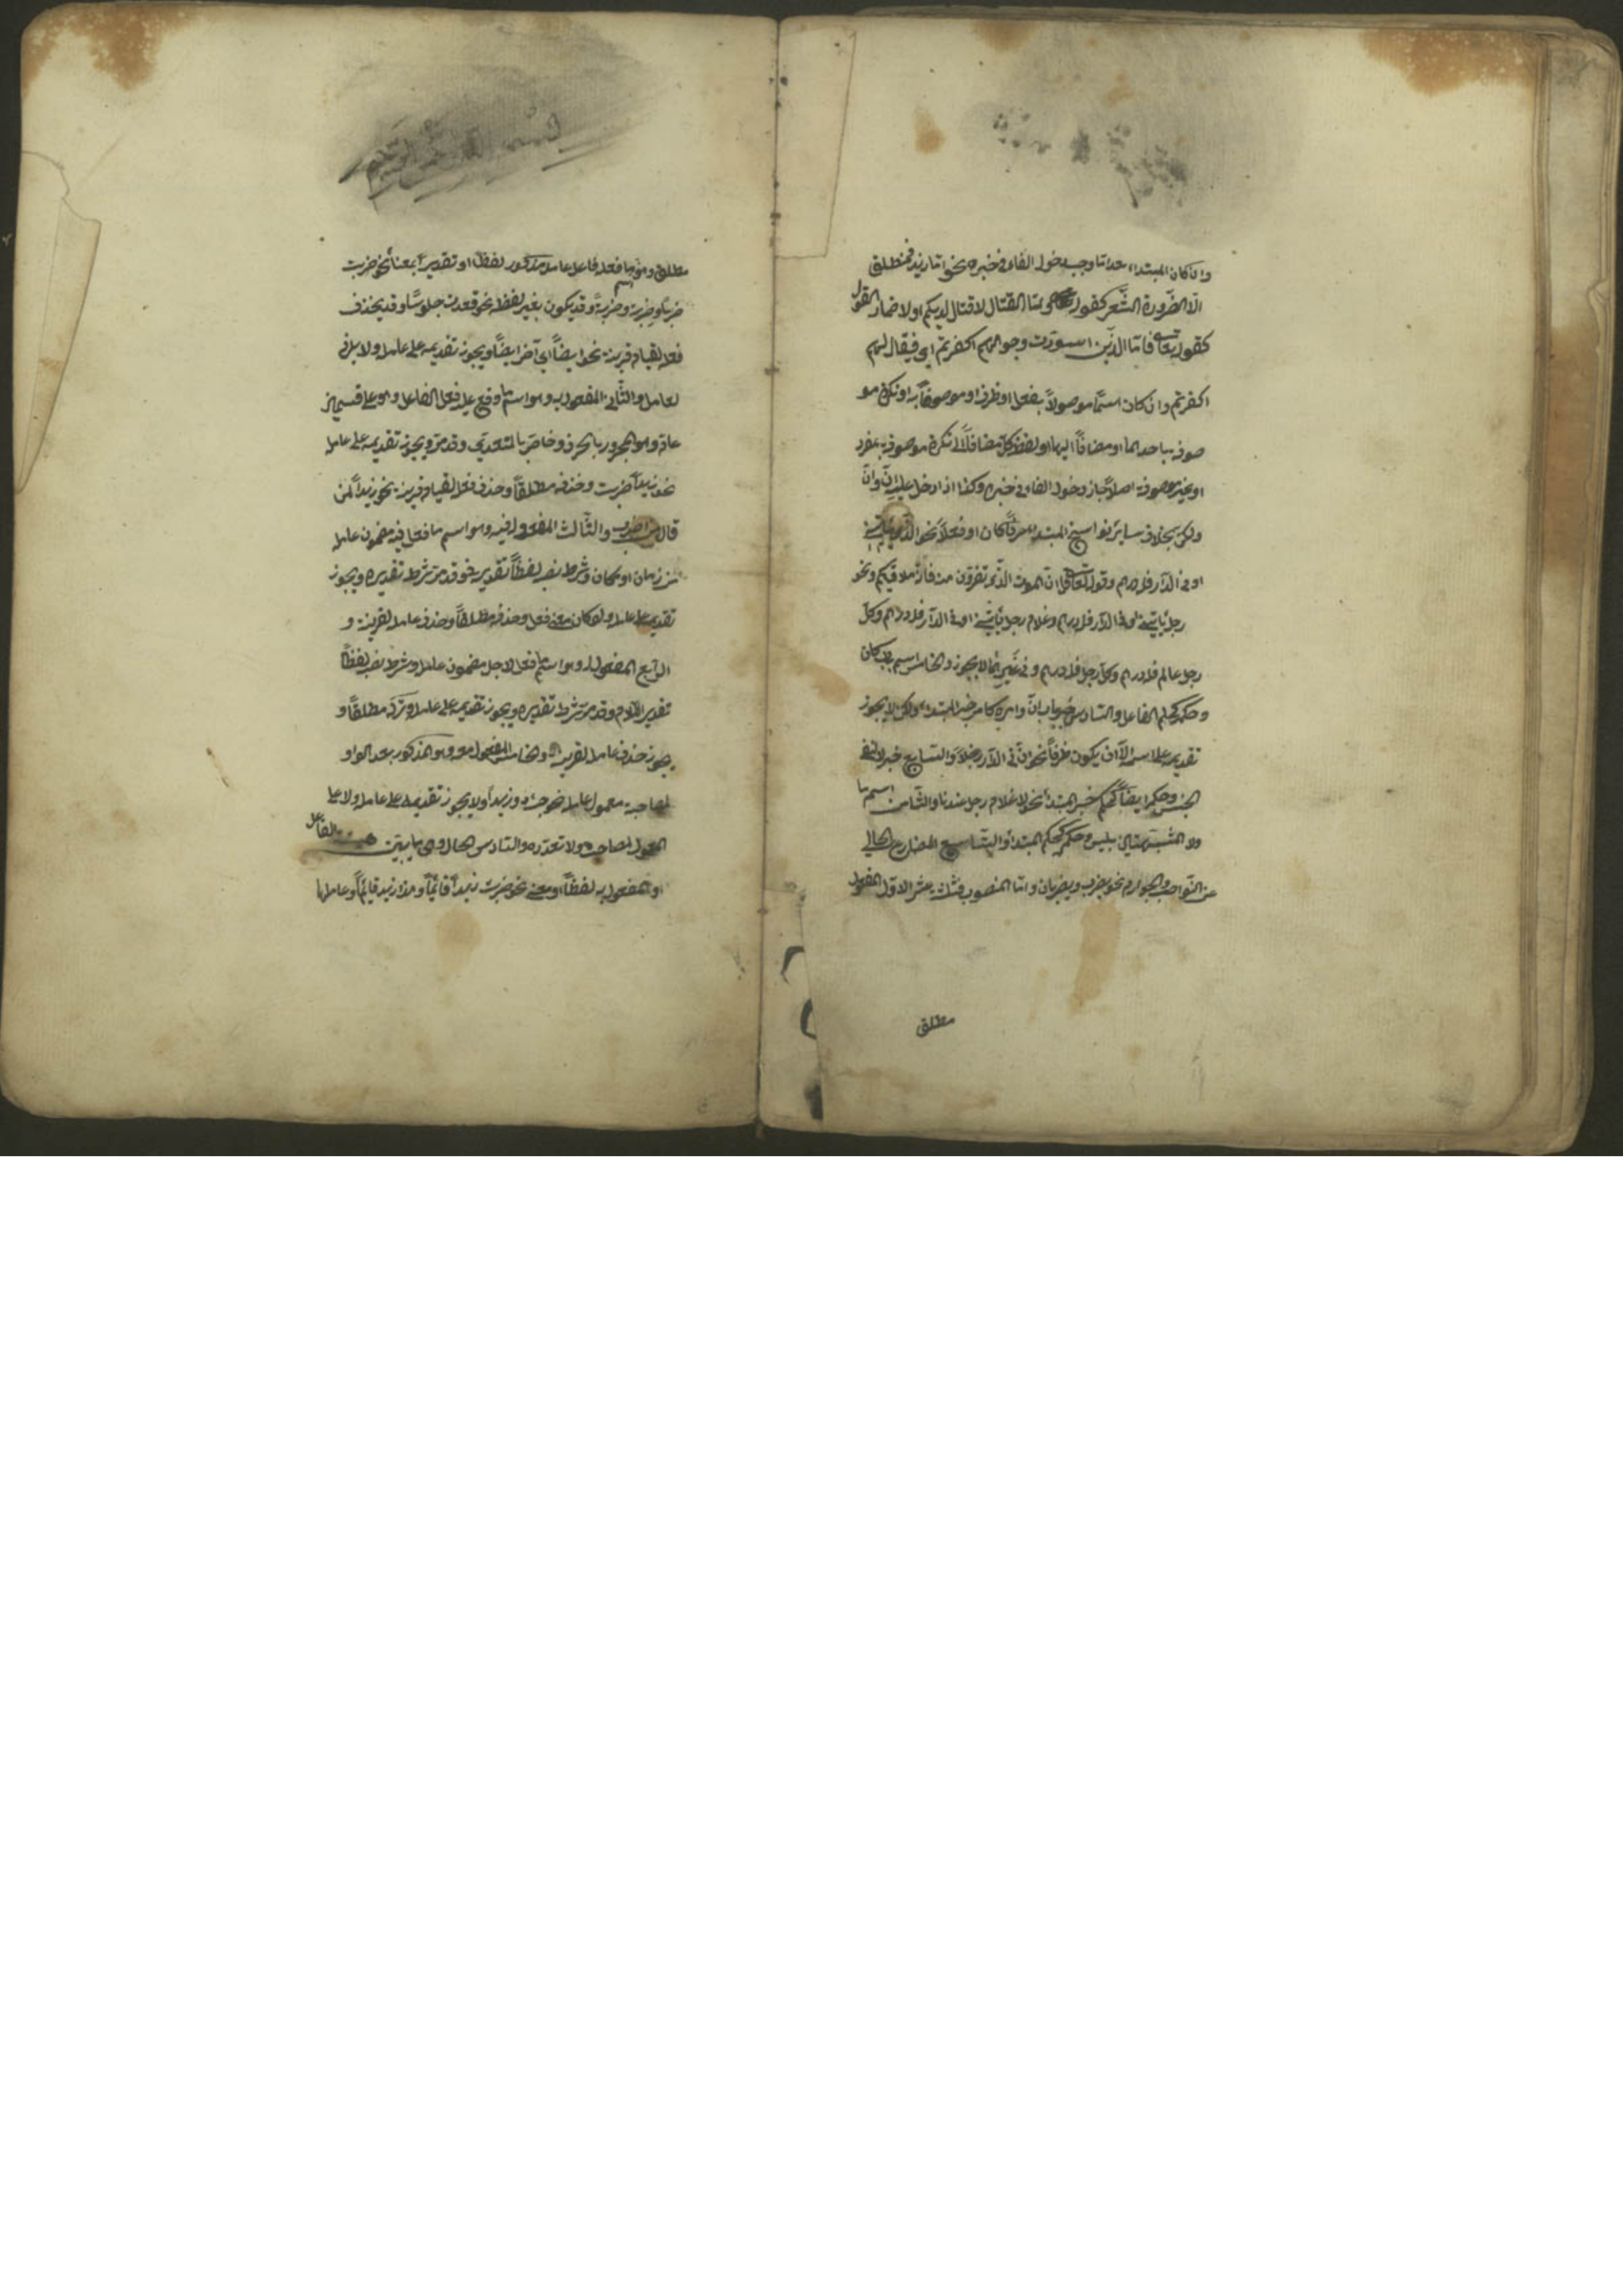 وان كان المبتداء بعد اما وجب دخول الفاء في خبره نحو اما زيد فمنطلق
الا لضرورة الشعر كقوله فاما القتال لا قتال لديكم او لاضمار القول
كقوله تعالى فاما الذين اسودت وجوههم اكفرتم اي فيقال لهم
اكفرتم وان كان اسما موصولا بفعل او ظرف او موصوفا به او نكرة مو
صوفة باحدهما او مضافا اليها او لفظ كل مضافا الى نكرة موصوفة بمفرد
او غير موصوفة اصلا جاز دخول الفاء في خبره وكذا اذا دخل عليه ان وان
ولكن بخلاف ساير نواسخ المبتدا حرفا كان او فعلا نحو الذي ياتيني
او في الدار فله درهم وقوله تعالى قل ان الموت الذي تفرون منه فانه ملاقيكم ونحو
رجل ياتيني او في الدار فله درهم وغلام رجل ياتيني او في الدار فله درهم وكل
رجل عالم فله درهم وكل رجل فله درهم وفي غيرها لا يجوز والخامس اسم باب كان
وحكمه كحكم الفاعل والسادس خبر باب ان وامره كامر خبر المبتداء ولكن لا يجوز
تقديمه على اسمه الا ان يكون ظرفا نحو ان في الدار رجلا والسابع خبر لا لنفي
الجنس وحكمه ايضا كحكم خبر المبتدا نحو لا غلام رجل عندنا والثامن اسم ما
ولا المشبهتين بليس وحكمه كحكم المبتدا والتاسع المضارع الخالي
عن النواصب والجوازم نحو يضرب ويضربان واما المنصوب فثلثة عشر الاول المفعول
مطلق
مطلق وهو اسم ما فعله فاعل عامل مذكور لفظا او تقديرا بمعناه نحو ضربت
ضربا وضربة وضربة وقد يكون بغير لفظه نحو قعدت جلوسا وقد يحذف
فعله لقيام قرينة نحو ايضا اي آض ايضا ويجوز تقديمه على عامله ولا يلزم
لعامله والثاني المفعول به وهو اسم ما وقع عليه فعل الفاعل وهو على قسمين
عام وهو المجرور بالحرف وخاص بالمتعدي وقد مر ويجوز تقديمه على عامله
نحو زيدا ضربت وحذفه مطلقا وحذف فعله لقيام قرينة نحو زيدا لمن
قال من اضرب والثالث المفعول فيه وهو اسم ما فعل فيه مضمون عامله
من زمان او مكان وشرط نصبه لفظا تقدير في وقد مر شرط تقديره ويجوز
تقديمه على عامله ولو كان معنى فعل وحذفه مطلقا وحذف عامله لقرينة و
الرابع المفعول له وهو اسم ما فعل لاجله مضمون عامله وشرط نصبه لفظا
تقدير اللام وقد مر شرط تقديره ويجوز تقديمه على عامله وتركه مطلقا و
يجوز حذف عامله لقرينة والخامس المفعول معه وهو المذكور بعد الواو
لمصاحبة معمول عامله نحو جئت وزيدا ولا يجوز تقديمه على عامله ولا على
المعمول المصاحب ولا تعدده والسادس الحال وهي ما يبين هيئة الفاعل
او المفعول به لفظا او معنى نحو ضربت زيدا قائما وهذا زيد قائما وعاملها